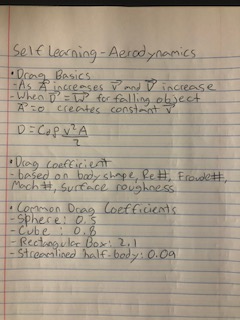 Self Learning - Aerodynamics
• Drag Basics
- As A⃗ increases v⃗ and D⃗ increase
- When D⃗ = W⃗ for falling object
A⃗ = 0 creates constant v⃗
D = Cdρ v²A / 2
• Drag coefficient
- based on body shape, Re#, Froude#,
Mach#, Surface roughness
• Common Drag Coefficients
- Sphere: 0.5
- Cube : 0.8
- Rectangular Box: 2.1
- Streamlined half-body: 0.09